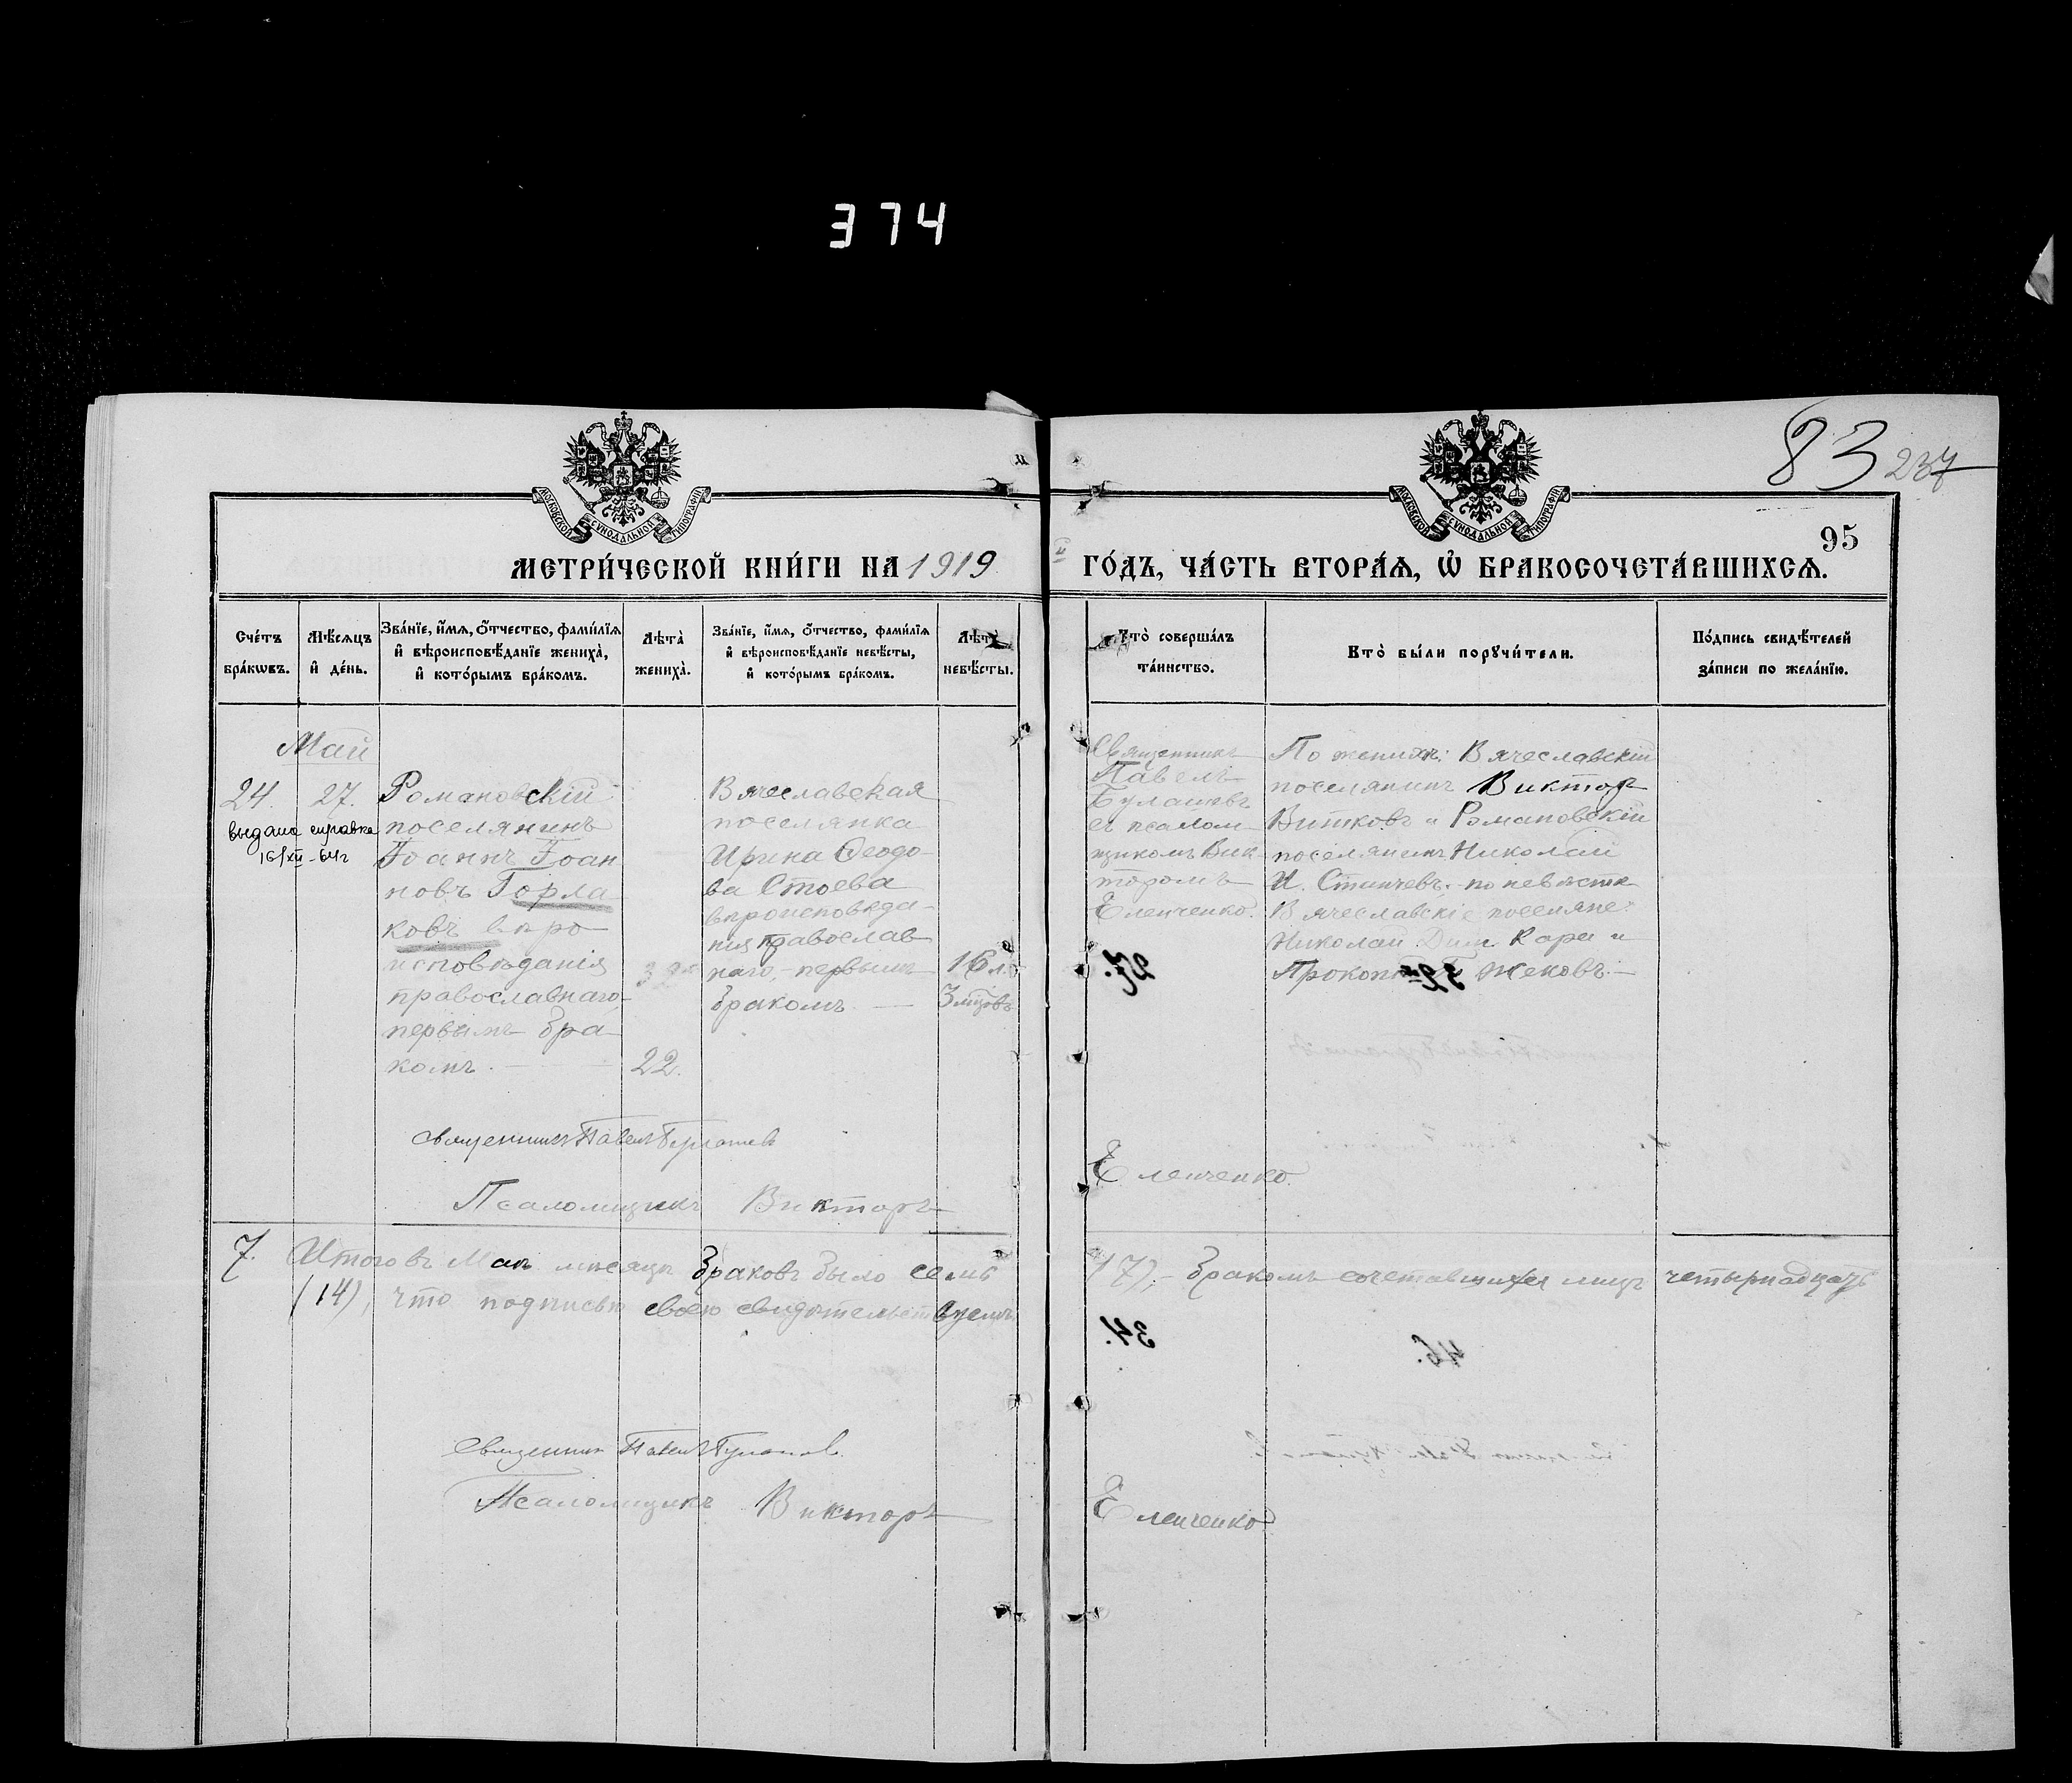 374
83 237
95
МОСКОВСКОЙ СѴНОДАЛЬНОЙ ТИПОГРАФІИ
МОСКОВСКОЙ СѴНОДАЛЬНОЙ ТИПОГРАФІИ
МЕТРИ́ЧЕСКОЙ КНИ́ГИ НА 1919 ГО́ДЪ, ЧА́СТЬ ВТОРА́Я, Ѡ҆ БРАКОСОЧЕТА́ВШИХСѦ.
Сче́тъ бра́кѡвъ.
Мѣ́сяцъ и҆ де́нь.
Зва́нїе, и҆́мѧ, о҆́тчество, фами́лїѧ
и҆ вѣроисповѣ́данїе жениха̀,
и҆ кото́рымъ бра́комъ.
Лѣта̀ жениха̀.
Зва́нїе, и҆́мѧ, о҆́тчество, фами́лїѧ
и҆ вѣроисповѣ́данїе невѣ́сты,
и҆ кото́рымъ бра́комъ.
Лѣта̀ невѣ́сты.
Кто̀ соверша́лъ
та́инство.
Кто̀ бы́ли порꙋчи́тели.
По́дпись свидѣ́телей
за́писи по жела́нїю.
Май
24. 27.
выдана справка
16/XII-64г
Романовскій
поселянинъ
Іоаннъ Іоан
новъ Горла
ковъ вѣро
исповѣданія
православнаго,
первымъ бра
комъ.
22.
Вячеславская
поселянка
Ирина Ѳеодо-
ва Стоева
вѣроисповѣда-
нія православ
наго, - первымъ
бракомъ. —
16 л.
3 мѣ
Священникъ
Павелъ
съ псалом
щикомъ Вик
торомъ
Еленченко.
По женихѣ: Вячеславскій
поселянинъ Викторъ
Витковъ и Романовскій
поселянинъ Николай
И. по невѣстѣ
Вячеславскіе поселяне:
Николай Дим. Кара и
Жековъ. —
Священникъ Павелъ
Псаломщикъ Викторъ Еленченко.
7. Итого въ Маѣ мѣсяцѣ браковъ было семь (7), - бракомъ сочетавшихся лицъ четырнадцать
(14), что подписью своею свидѣтельствуемъ.
Священникъ Павелъ
Псаломщикъ Викторъ Еленченко